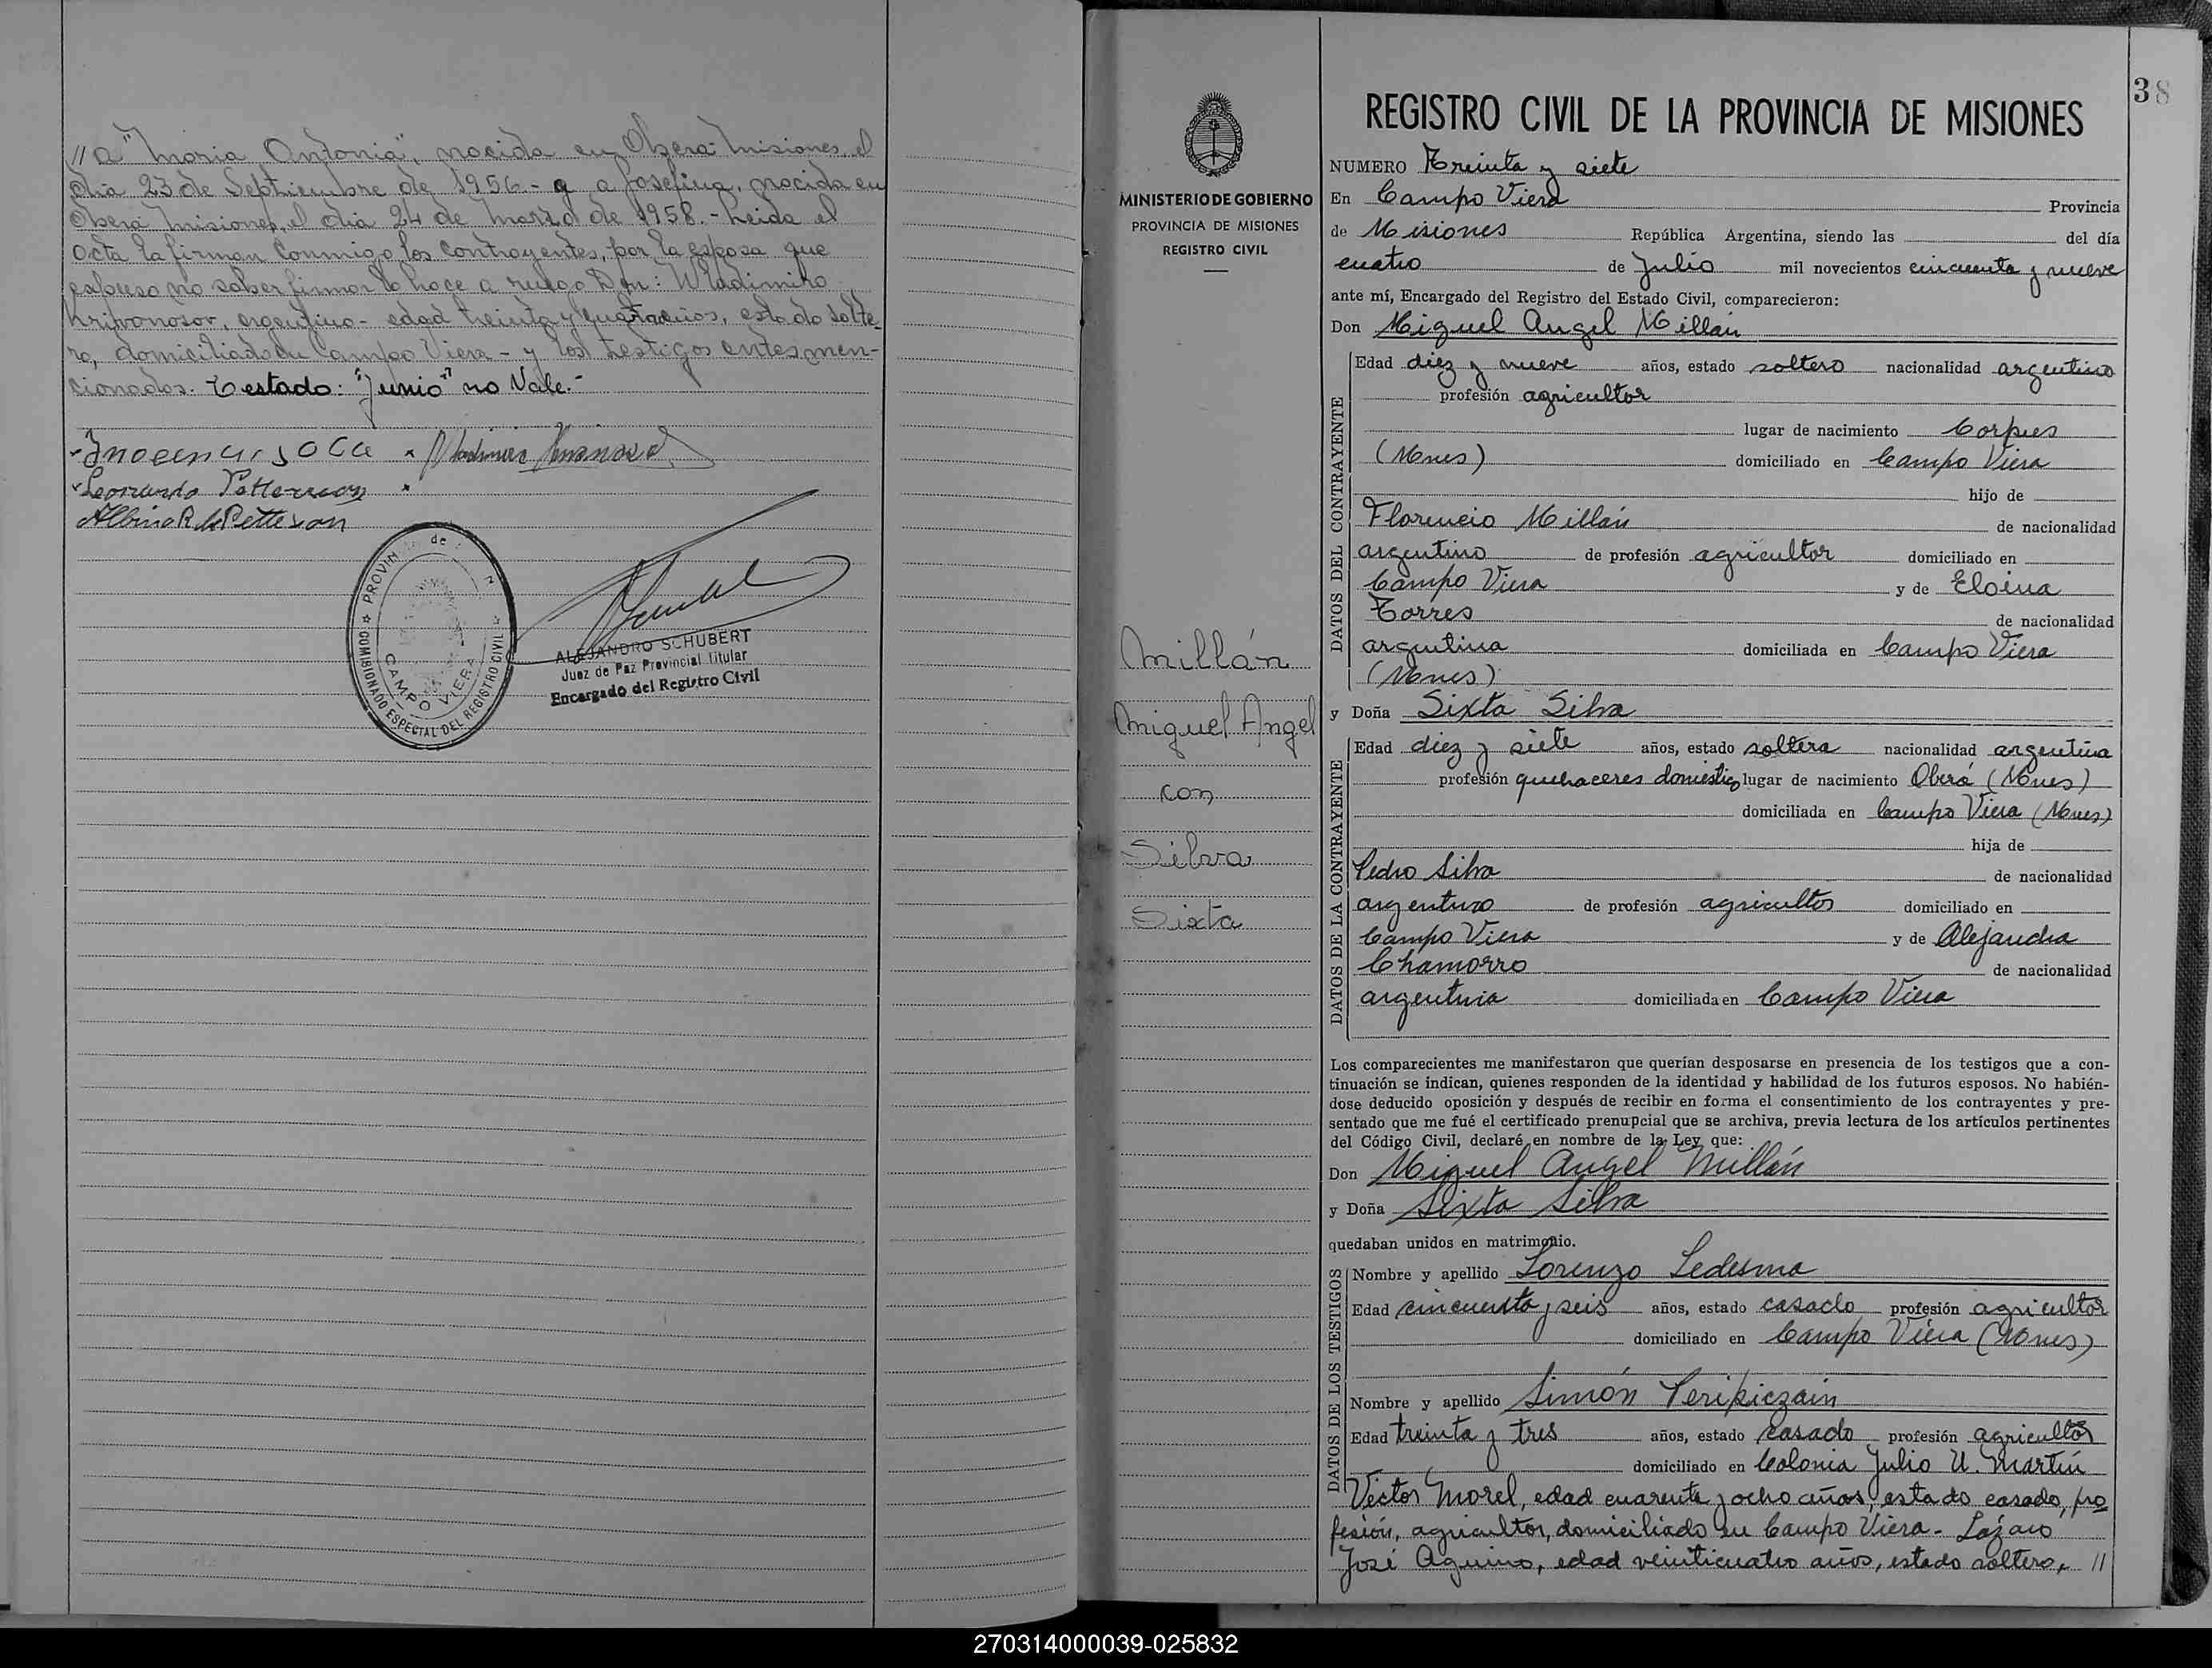 // a "Maria Antonia", nacida en Oberá Misiones el
día 23 de Septiembre de 1956 - y a Josefina, nacida en
Oberá Misiones, el día 24 de Marzo de 1958. - Leida el
acta la firman conmigo, los contrayentes, por la esposa que
expreso no saber firmar lo hace a ruego Don: Wladimiro
Krivonosov, argentino - edad treinta y cuatro años, estado solte-
ro, domiciliado en Campo Viera - y los testigos antes men-
cionados. Testado: "Junio" no Vale.-
Leonardo Petterson
Albina R de Petterson
ALEJANDRO SCHUBERT
Juez de Paz Provincial Titular
Encargado del Registro Civil
PROVIN de
COMISIONADO ESPECIAL DEL REGISTRO CIVIL
CAMPO VIERA
38
MINISTERIO DE GOBIERNO
PROVINCIA DE MISIONES
REGISTRO CIVIL
Millán
Miguel Angel
con
Silva
Sixta
REGISTRO CIVIL DE LA PROVINCIA DE MISIONES
NUMERO Treinta y siete
En Campo Viera Provincia
de Misiones República Argentina, siendo las del día
cuatro de Julio mil novecientos cincuenta y nueve
ante mí, Encargado del Registro del Estado Civil, comparecieron:
Don Miguel Angel Millán
DATOS DEL CONTRAYENTE
Edad diez y nueve años, estado soltero nacionalidad argentino
profesión agricultor
lugar de nacimiento Corpus
(Mnes) domiciliado en Campo Viera
hijo de
Florencio Millán de nacionalidad
argentino de profesión agricultor domiciliado en
Campo Viera y de Eloina
Torres de nacionalidad
argentina domiciliada en Campo Viera
(Mnes)
y Doña Sixta Silva
DATOS DE LA CONTRAYENTE
Edad diez y siete años, estado soltera nacionalidad argentina
profesión quehaceres domestic lugar de nacimiento Oberá (Mnes)
domiciliada en Campo Viera (Mnes)
hija de
Pedro Silva de nacionalidad
argentino de profesión agricultor domiciliado en
Campo Viera y de Alejandra
Chamorro de nacionalidad
argentina domiciliada en Campo Viera
Los comparecientes me manifestaron que querían desposarse en presencia de los testigos que a con-
tinuación se indican, quienes responden de la identidad y habilidad de los futuros esposos. No habién-
dose deducido oposición y después de recibir en forma el consentimiento de los contrayentes y pre-
sentado que me fué el certificado prenupcial que se archiva, previa lectura de los artículos pertinentes
del Código Civil, declaré en nombre de la Ley que:
Don Miguel Angel Millán
y Doña Sixta Silva
quedaban unidos en matrimonio.
DATOS DE LOS TESTIGOS
Nombre y apellido Lorenzo Ledesma
Edad cincuenta y seis años, estado casado profesión agricultor
domiciliado en Campo Viera (Mnes)
Nombre y apellido Simón
Edad treinta y tres años, estado casado profesión agricultor
domiciliado en Colonia Julio U. Martin
Victor Morel, edad cuarenta y ocho años, estado casado, pro
fesión, agricultor, domiciliado en Campo Viera - Lázaro
José Aquino, edad veinticuatro años, estado soltero, //
270314000039-025832